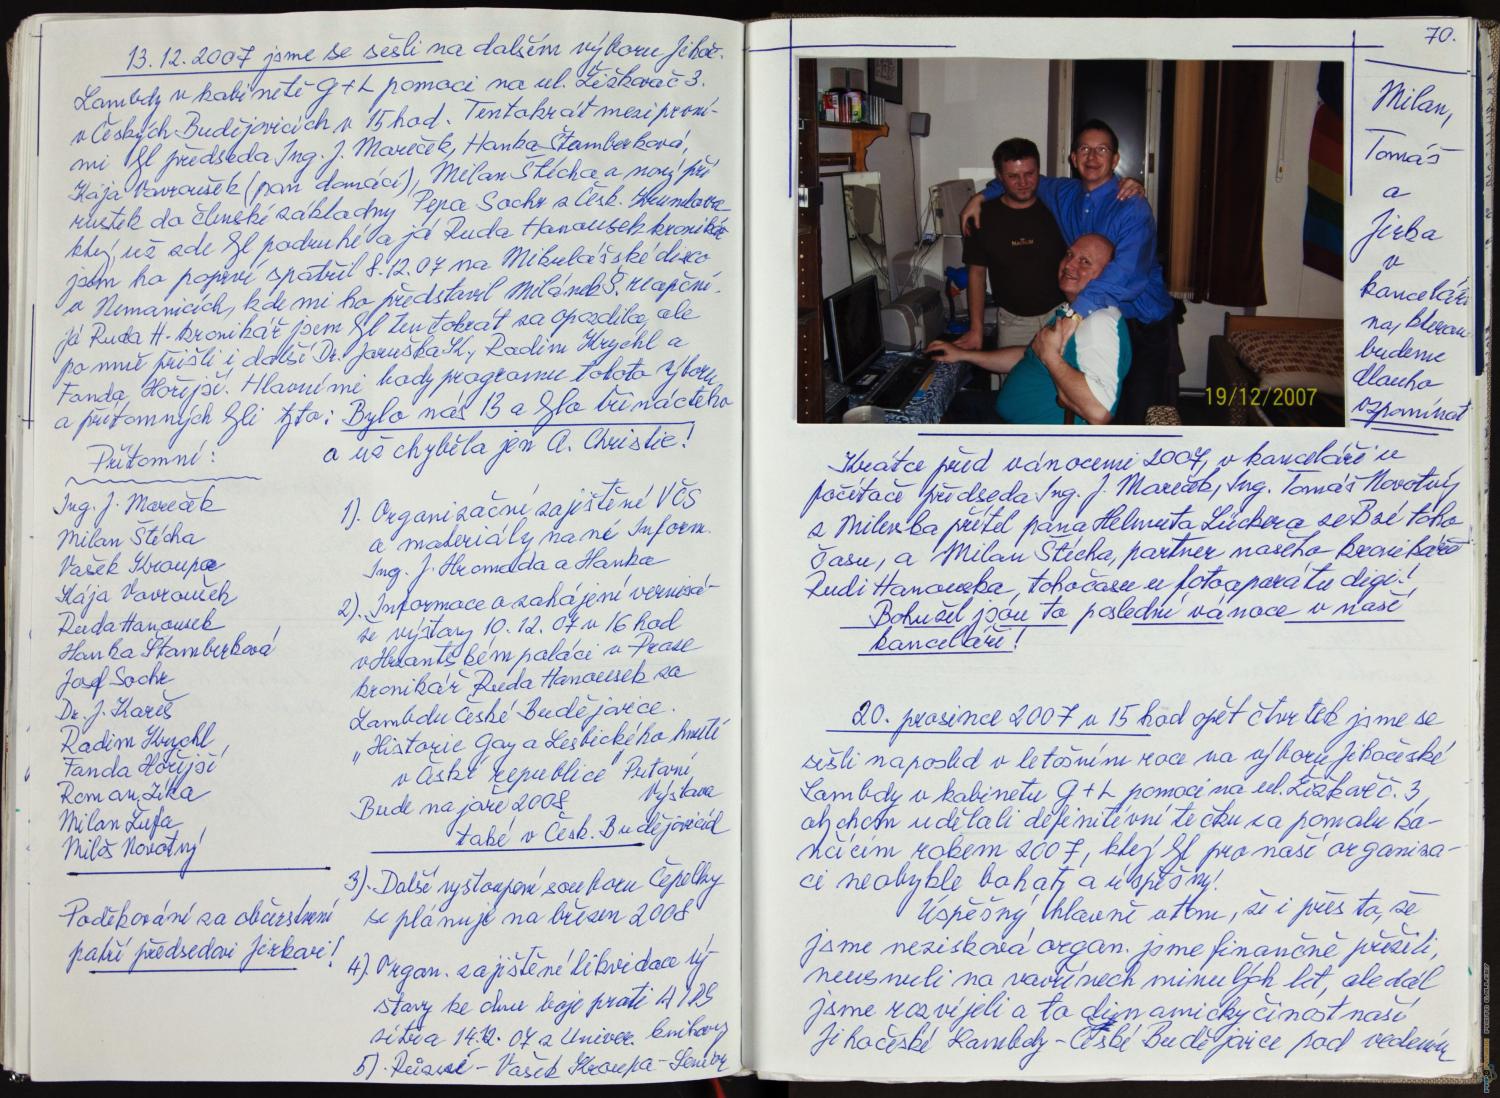 13.12.2007 jsme se sešli na dalším výboru Jihoč.
Lambdy v kabinetě G+L pomoci na ul. Žižkova č 3.
v Českých Budějovicích v 15 hod. Tentokrát mezi prvními
mi byl předseda Ing. J. Mareček, Hanka Štamberková,
Kája Vavroušek (pan domácí), Milan Štícha a nový pří
rustek do členské základny Pepa Sochr z Česk. Krumlova
který už zde byl podruhé a já Ruda Hanousek kronikář
jsem ho poprvé spatřil 8.12.07 na Mikulášské disco
v Nemanicích, kde mi ho představil Milánek Š, recepční.
já Ruda H. kronikář jsem byl tentokrát za opozdilce, ale
po mně přišli i další Dr. Jaruška K, Radim Krychl a
Fanda Hořejší. Hlavními body programu tohoto výboru
a přítomných byli tyto: Bylo nás 13 a bylo třináctého
a už chyběla jen A. Christie!
Přítomni:
Ing. J. Mareček
Milan Štícha
Vašek Kroupa
Kája Vavroušek
Ruda Hanousek
Hanka Štamberková
Josef Sochr
Dr. J. Kareš
Radim Krychl
Fanda Hořejší
Roman Zíka
Milan Žufa
Miloš Novotný
Poděkování za občerstvení
patří předsedovi Jirkovi!
1). Organizační zajištění VČS
a materiály na né Inform.
Ing. J. Hromada a Hanka
2). Informace o zahájení vernisá-
že výstavy 10.12.07 v 16 hod
v Hrzánském paláci v Praze
kronikář Ruda Hanousek za
Lambdu České Budějovice.
„Historie Gay a Lesbického hnutí
v České republice Putovní
Bude na jaře 2008 Výstava
také v Česk. Budějovicích
3). Další vystoupení souboru Čepelky
se plánuje na březen 2008
4). Organ. zajištěné likvidace vý-
stavy ke dnu boje proti AIDS
zítra 14.12.07 z Univer. knihovny
5). Různé - Vašek Kroupa - Senior
70.
Milan,
Tomáš
a
Jirka
v
kanceláři
na
budeme
dlouho
vzpomínat
19/12/2007
Krátce před vánocemi 2007, v kanceláři u
počítače předseda Ing. J. Mareček, Ing. Tomáš Novotný
z Milevska přítel pana Helmuta Lückera ze BSÉ toho
času, a Milan Štícha, partner našeho kronikáře
Rudi Hanouska, tohočasu u fotoaparátu digi!
Bohužel jsou to poslední vánoce v naší
kanceláři!
20. prosince 2007 v 15 hod opět čtvrtek jsme se
sešli naposled v letošním roce na výboru Jihočeské
Lambdy v kabinetu G+L pomoci na ul. Žižkač č. 3,
abychom udělali definitivní tečku za pomalu ko-
nčícím rokem 2007, který byl pro naší organiza-
ci neobykle bohatý a úspěšný!
Úspěšný hlavně v tom, že i přes to, že
jsme nezisková organ. jsme finančně přežili,
neusnuli na vavřínech minulých let, ale dál
jsme rozvíjeli a to dynamicky činost naší
Jihočeské Lambdy - České Budějovice pod vedením